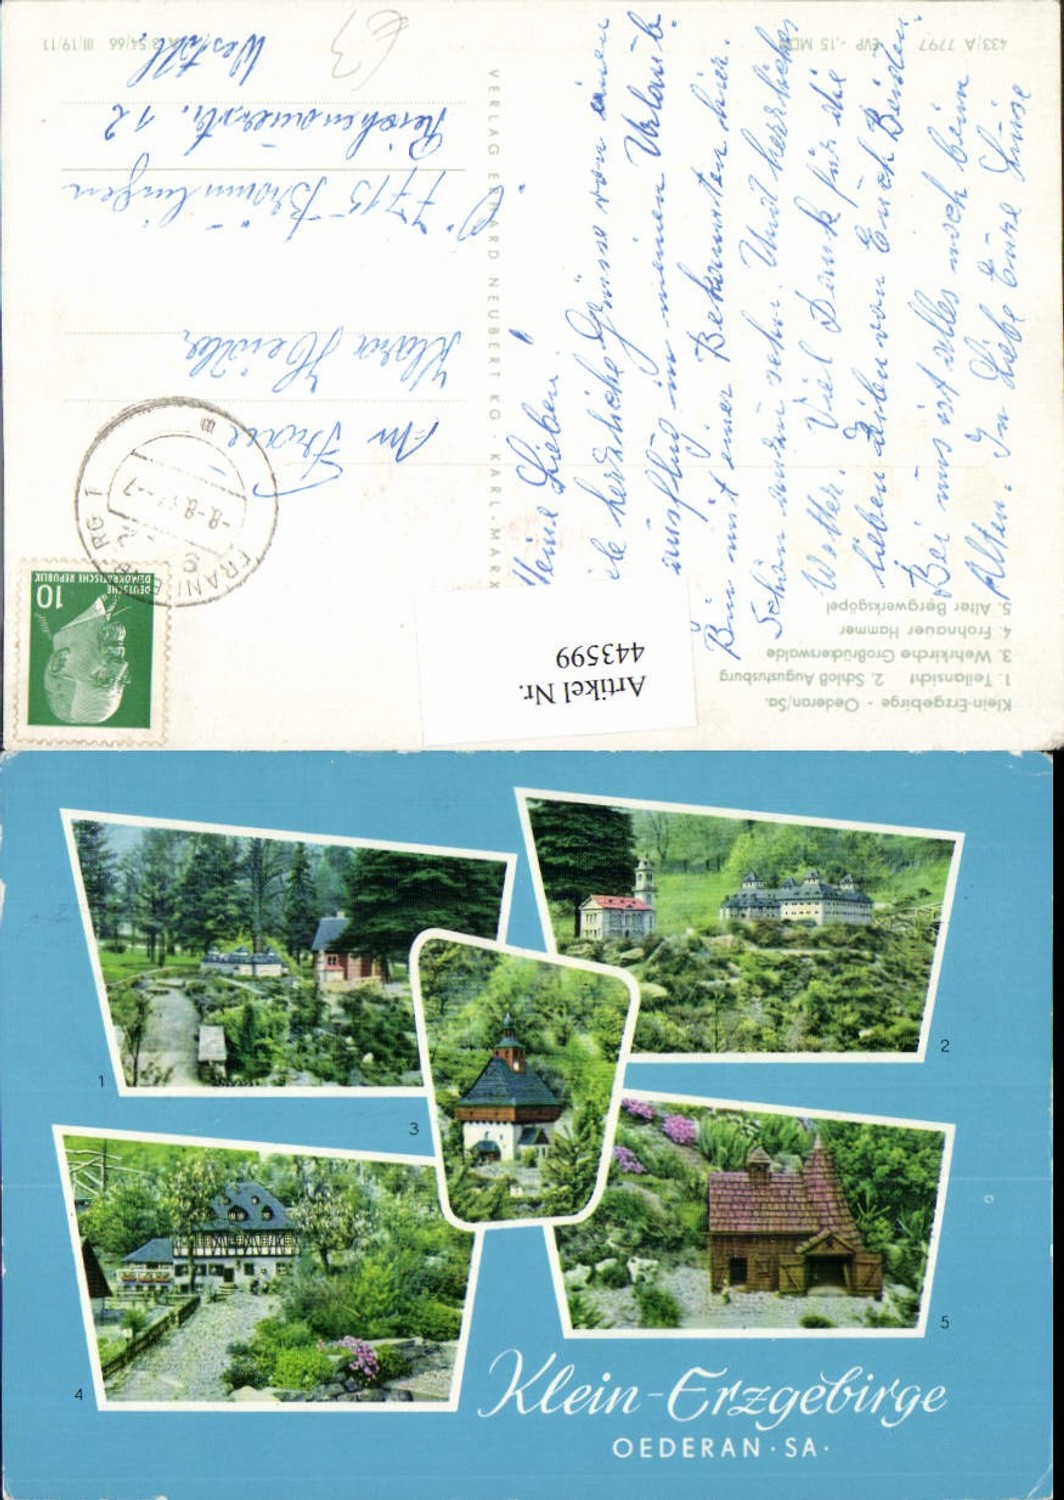 Klein-Erzgebirge - Oederan/Sa.
1. Teilansicht 2. Schloß Augustusburg
3. Wehrkirche Großrückerswalde
4. Frohnauer Hammer
5. Alter Bergwerksgöpel
Meine Lieben!
herzliche Grüsse von einem
ausflug in meinen Urlaub.
Bin mit einer Bekannten hier.
Schön anzusehn. Und herrliches
Wetter. Viel Dank für die
lieben Zeilen von Euch Beiden.
Bei uns ist alles noch beim
Alten. In Liebe Eure Luise
VERLAG ERHARD NEUBERT KG · KARL-MARX
433/A 7797 EVP -,15 MDN
III/19/11
DEUTSCHE
DEMOKRATISCHE REPUBLIK
10
FRANKENBERG 1
An Frau
Klara Heidler
7715 Bräunlingen
12
Westdl.
€3
Artikel Nr.
443599
1
2
3
4
5
Klein-Erzgebirge
OEDERAN · SA ·